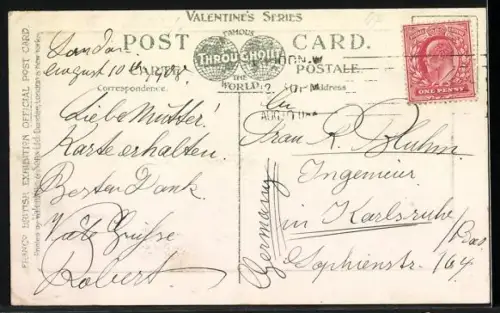 VALENTINE'S SERIES
POST CARD.
FAMOUS THROUGHOUT THE WORLD
CARTE POSTALE
Correspondence. Address
FRANCO BRITISH EXHIBITION OFFICIAL POST CARD.
ONE PENNY
London
August 10th
Liebe Mutter!
Karte erhalten.
Besten Dank
Viele Grüsse
Robert
An
Frau R. Bluhm
Ingenieur
in Karlsruhe/Bad.
Sophienstr. 164
Germany